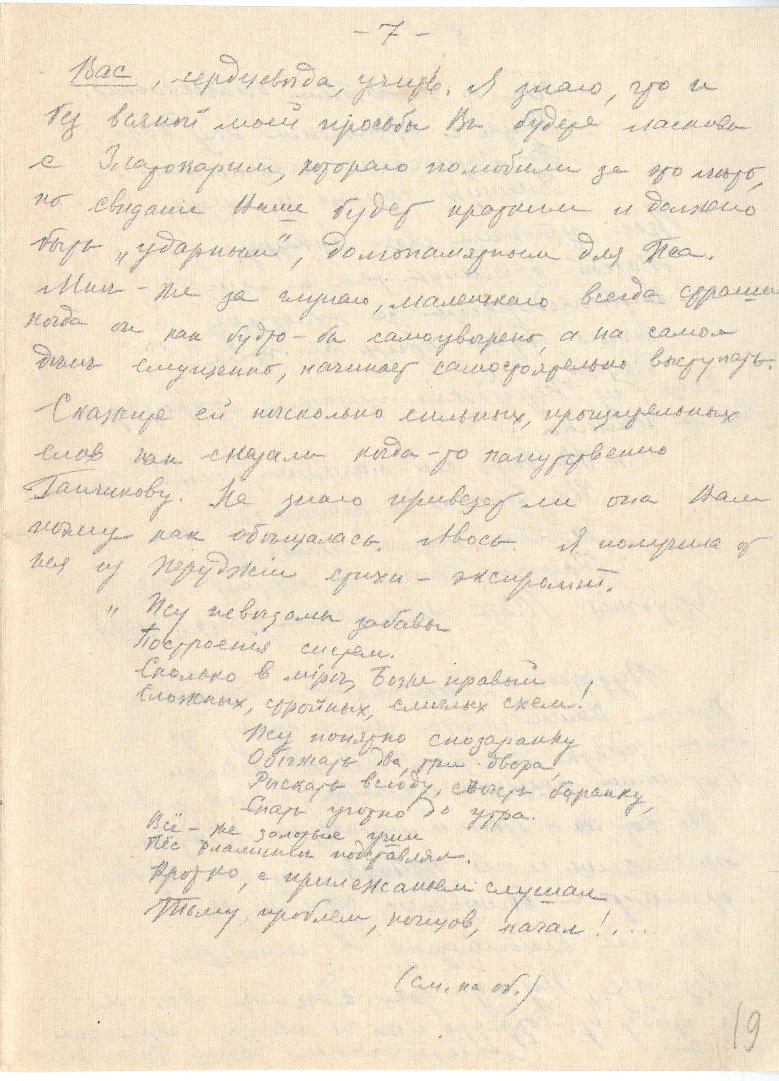 - 7 -
Вас, сердцеведа, учить. Я знаю, что и
без всякой моей просьбы Вы будете ласковы
с Златокарим, которого полюбили за это лѣто,
но свиданіе Ваше будет кратким и должно
быть „ударным", долгопамятным для Пса.
Мнѣ-же за глупаго, маленькаго всегда страшно
когда он как будто-бы самоувѣренно, а на самом
дѣлѣ смущенно, начинает самостоятельно выступать.
Скажите ей нѣсколько сильных, пронзительных
слов как сказали когда-то напутственно
Ганчикову. Не знаю привезет ли она Вам
поэму как обѣщалась. Авось. Я получила от
нея из Перуджіи стихи - экспромт.
„Псу невѣдомы забавы
Построенія систем.
Сколько в мірѣ, Боже правый
Сложных, стройных, смѣлых схем!
Псу понятно спозаранку
Обѣжать два, три двора,
Рыскать всюду, съѣсть баранку,
Спать уютно до утра.
Всё-же золотые уши
Пёс подставлял.
Кротко, с прилежаньем слушал
Тьму проблем, концов, начал!....
(см. на об.)
19